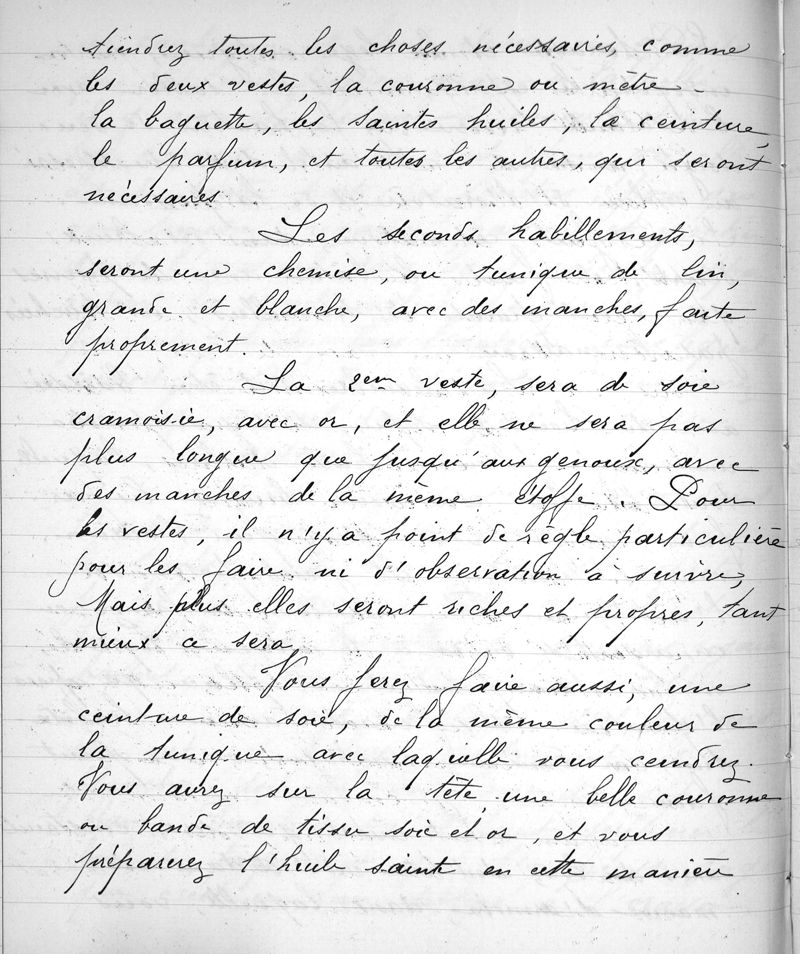 tiendrez toutes les choses nécessaires, comme
les deux vestes, la couronne ou mètre -
la baguette, les saintes huiles, la ceinture,
le parfum, et toutes les autres, qui seront
nécessaires
Les seconds habillements,
seront une chemise, ou tunique de lin,
grande et blanche, avec des manches, faite
proprement.
La 2em veste, sera de soie
cramoisie, avec or, et elle ne sera pas
plus longue que jusqu'aux genoux, avec
des manches de la même étoffe. Pour
les vestes, il n'y a point de règle particulière
pour les faire ni d'observation à suivre,
Mais plus elles seront riches et propres, tant
mieux ce sera
Vous ferez faire aussi, une
ceinture de soie, de la même couleur de
la tunique avec laquelle vous ceindrez.
Vous aurez sur la tête, une belle couronne
ou bande de tissu soie et or, et vous
préparerez l'huile sainte en cette manière